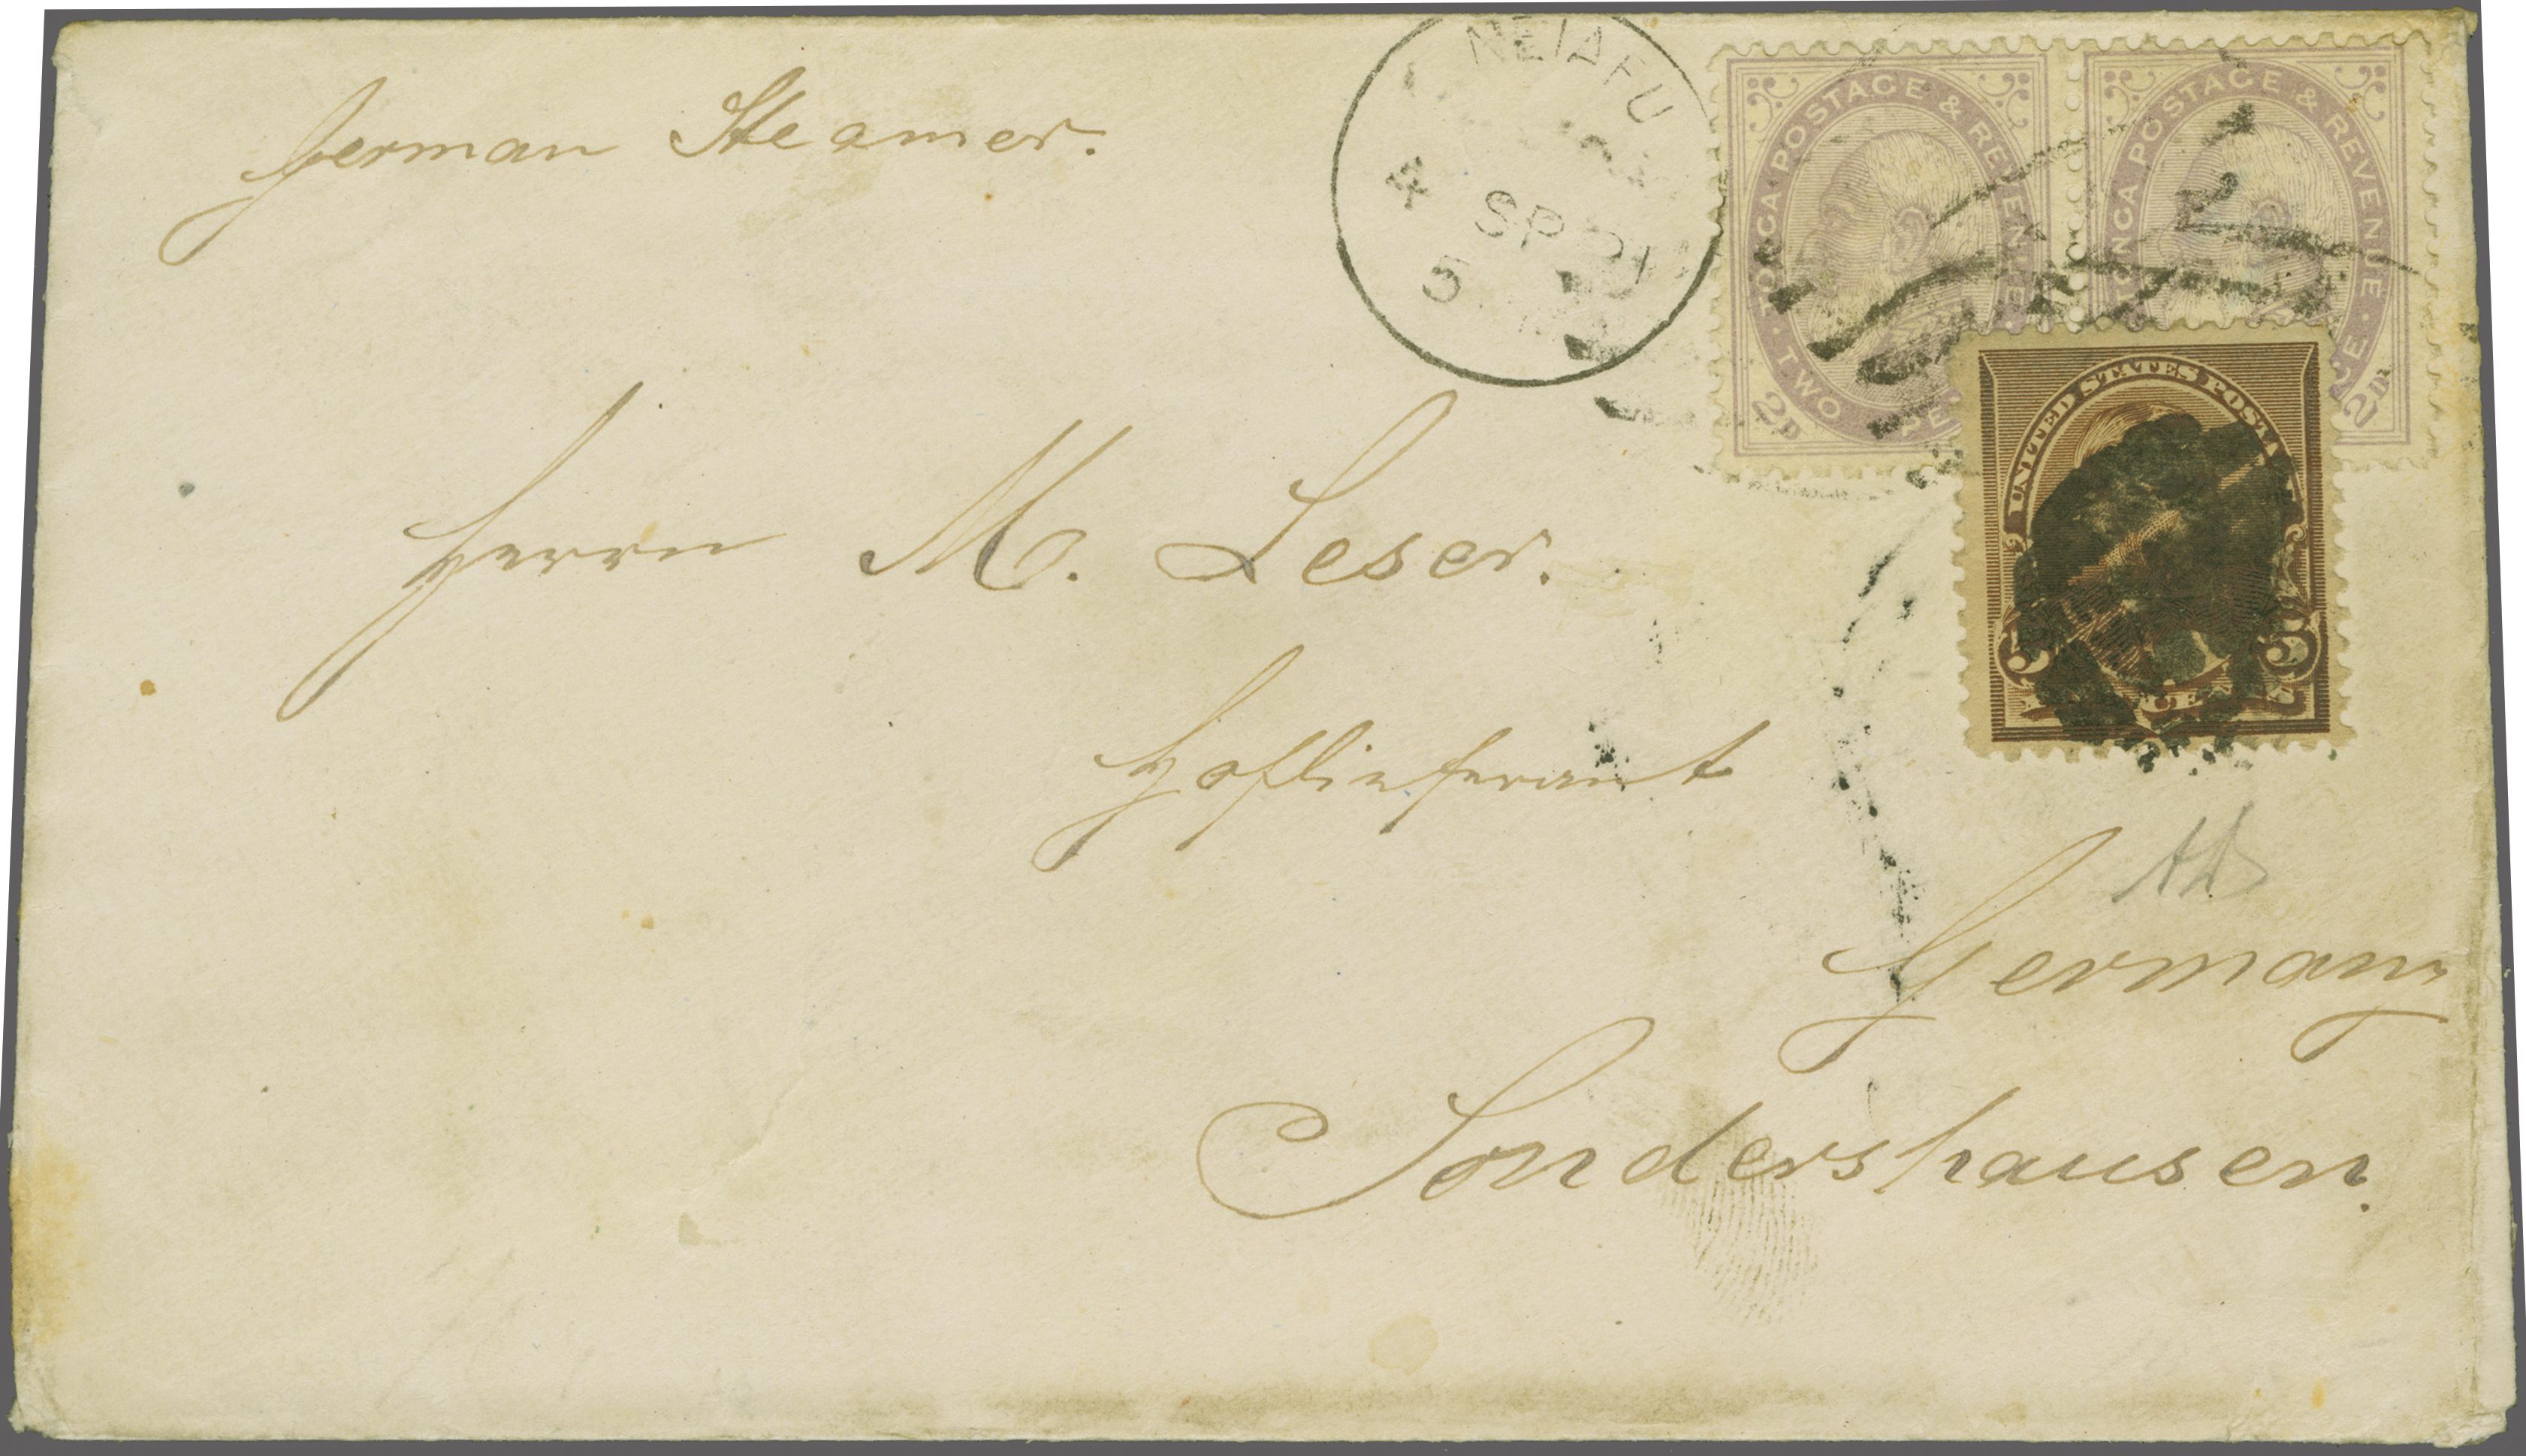 German Steamer.
NEIAFU
4 SP 91
5
TONGA POSTAGE & REVENUE
TWO PE
2D
TONGA POSTAGE & REVENUE
CE
2D
UNITED STATES POSTA
Herrn M. Leser.
Hoflieferant
Germany
Sondershausen.